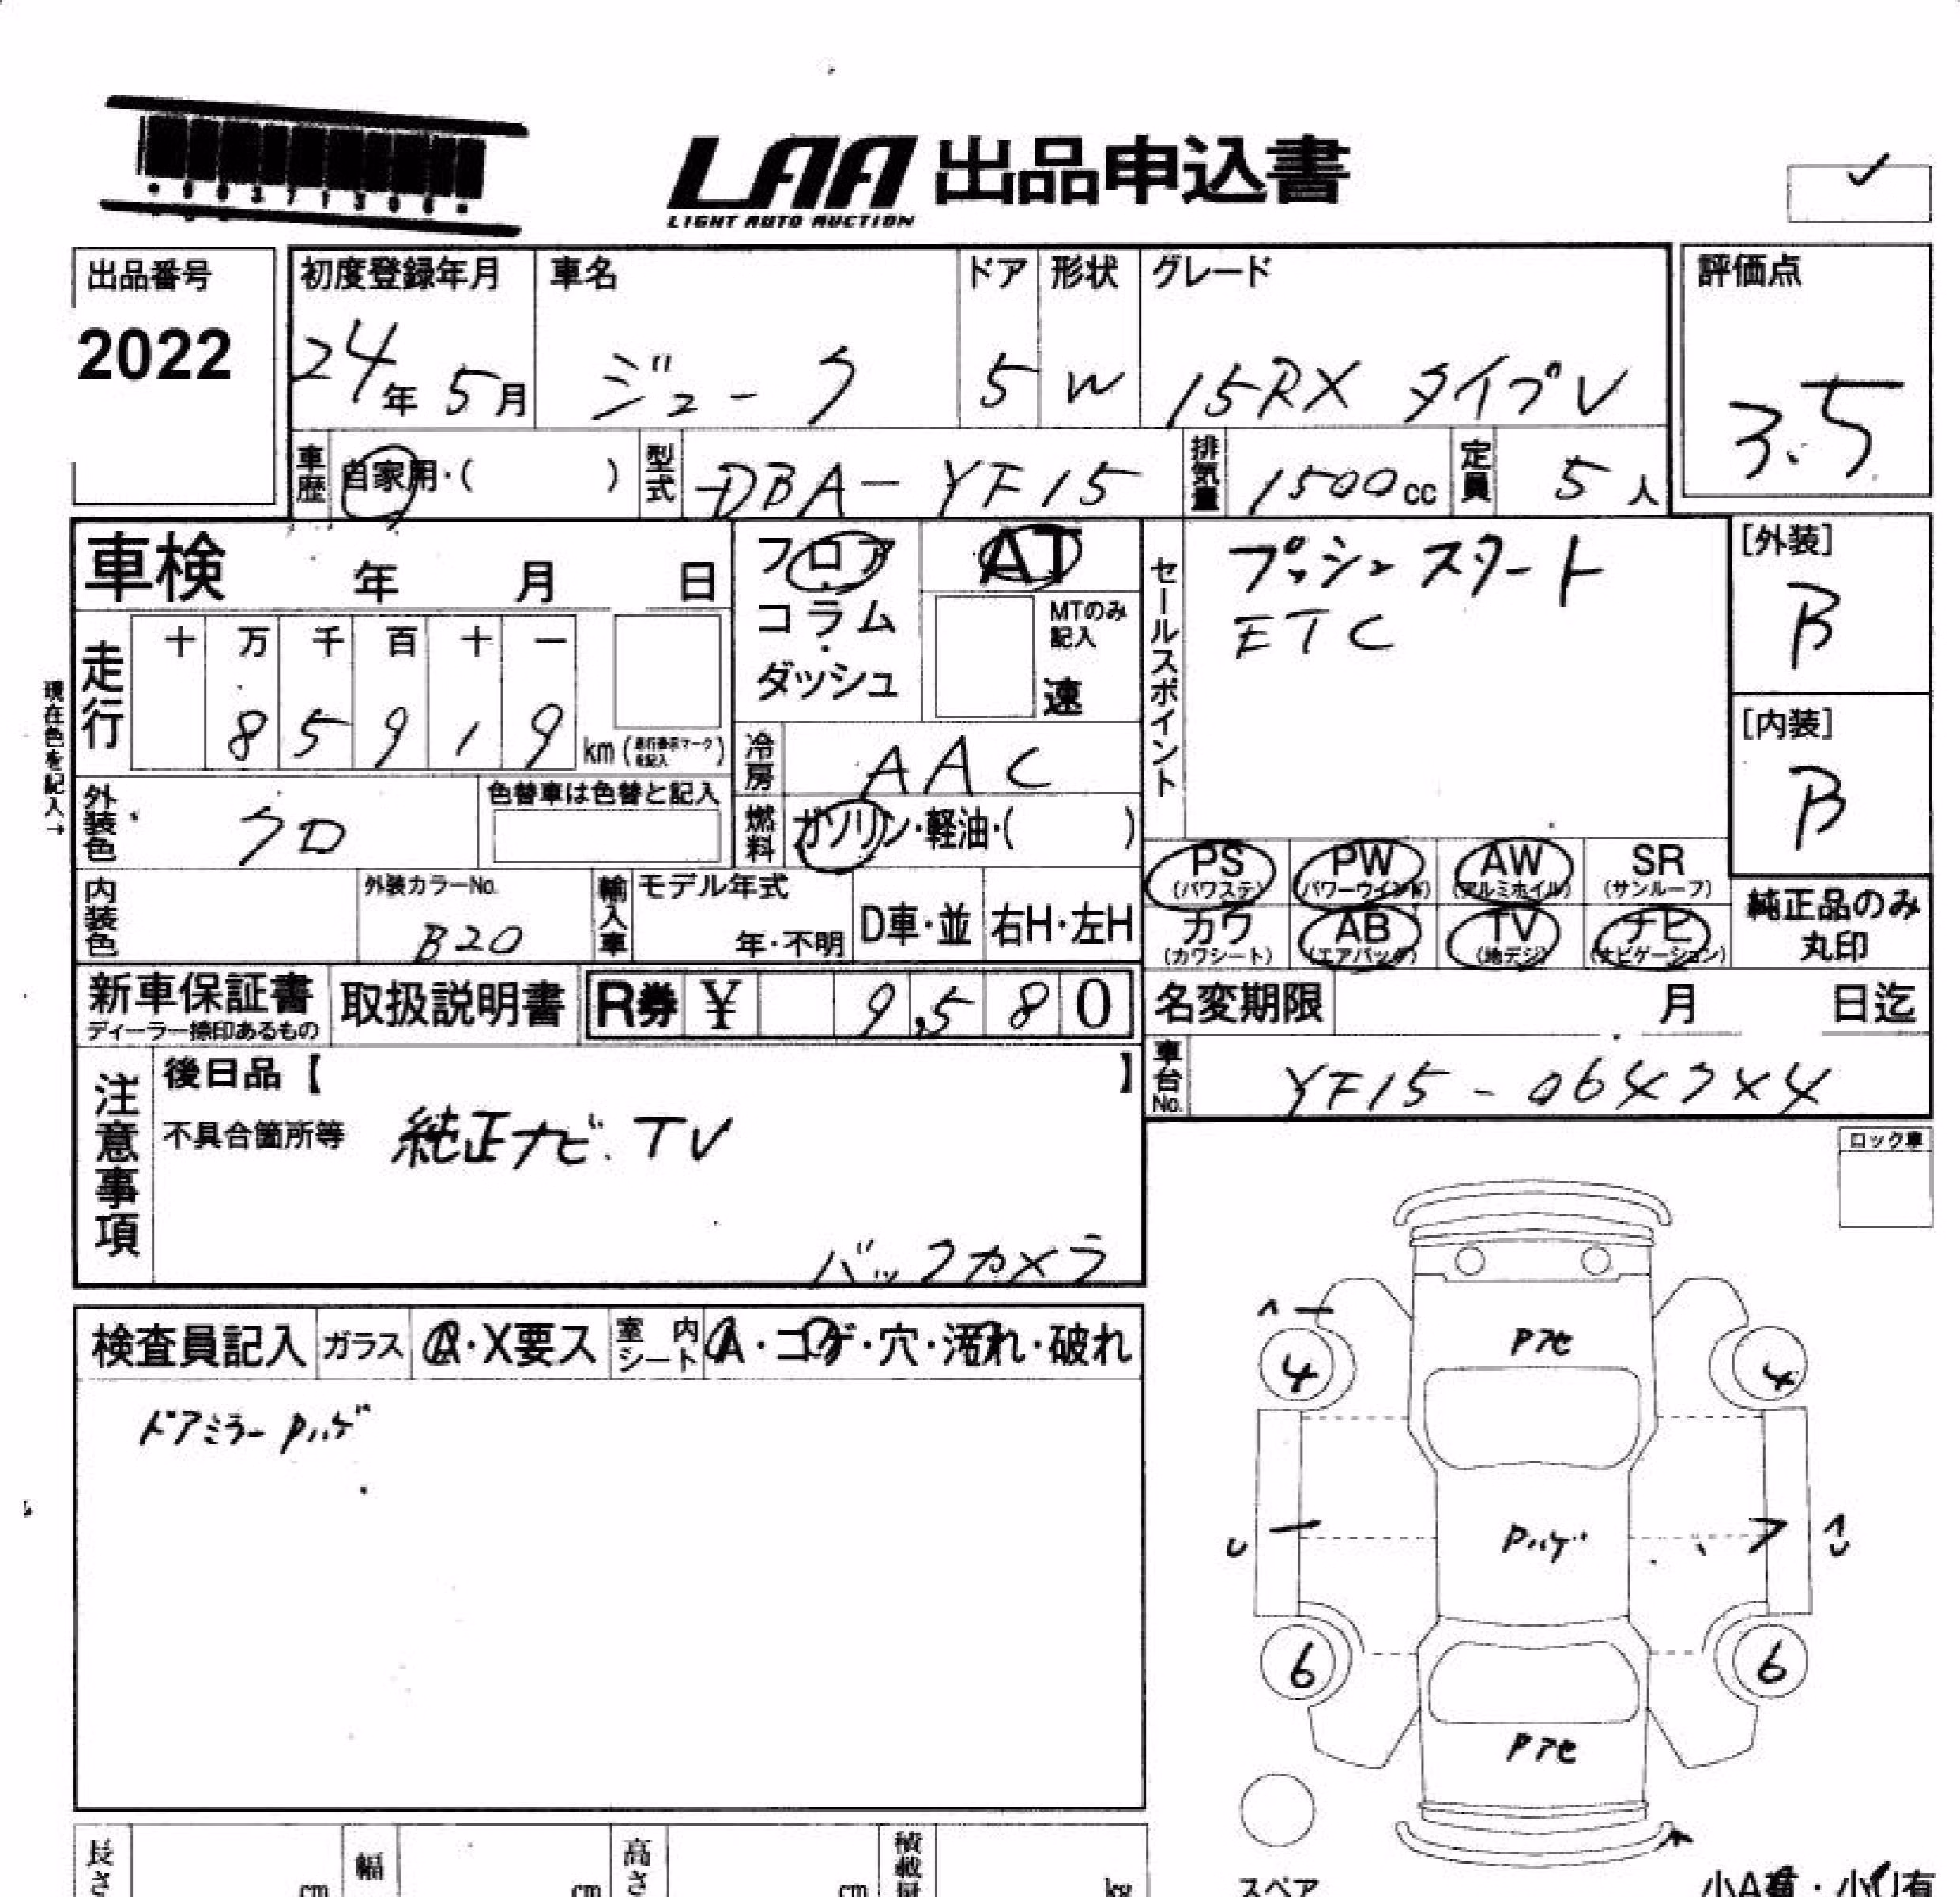 LAA 出品申込書
LIGHT AUTO AUCTION
出品番号
2022
初度登録年月
24年 5月
車名
ジューク
ドア
5
形状
W
グレード
15RX タイプV
評価点
3.5
車歴
自家用・( )
型式
DBA-YF15
排気量
1500cc
定員
5人
車検 年 月 日
フロア
コラム
ダッシュ
AT
MTのみ
記入
速
セールスポイント
プッシュスタート
ETC
[外装]
B
[内装]
B
現在色を記入→
走行
十 万 千 百 十 一
8 5 9 1 9 km
冷房
AAC
外装色
クロ
色替車は色替と記入
燃料
ガソリン・軽油・( )
PS PW AW SR
(パワステ) (パワーウインド) (アルミホイル) (サンルーフ)
カワ AB TV ナビ
(カワシート) (エアバック) (地デジ) (ナビゲーション)
純正品のみ
丸印
内装色
外装カラーNo.
B20
輸入車
モデル年式
年・不明
D車・並
右H・左H
新車保証書
ディーラー捺印あるもの
取扱説明書
R券 ¥ 9,580
名変期限 月 日迄
車台No.
YF15-
注意事項
後日品【 】
不具合箇所等
純正ナビ.TV
バックカメラ
ロック車
検査員記入
ガラス
A・X要ス
室内
シート
A・コゲ・穴・汚れ・破れ
ドアミラーPハゲ
Pアセ
4 4
Pハゲ
6 6
Pアセ
スペア
長さ cm
幅 cm
高さ cm
kg